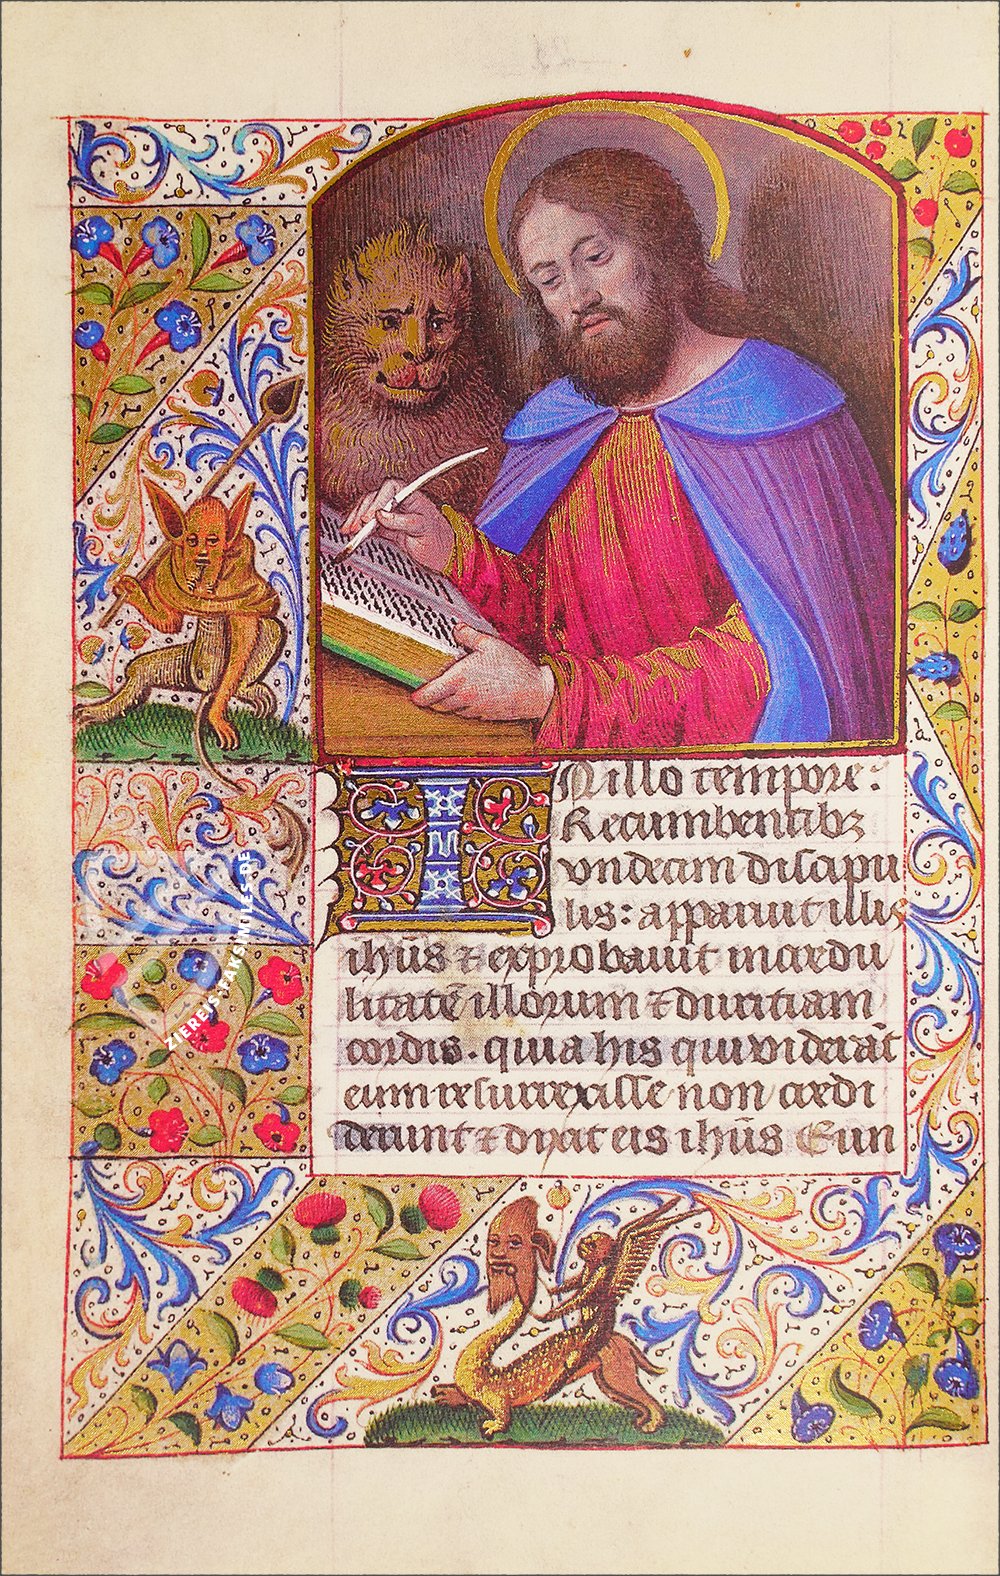 In illo tempore:
Recumbentibꝫ
vndecim discipu
lis: apparuit illis
ihūs ⁊ exprobauit incredu
litatē illorum ⁊ duritiam
cordis. quia his qui viderāt
eum resurrexisse non credi
derunt ⁊ dixit eis ihūs Eun
ZIEREIS FAKSIMILES.DE